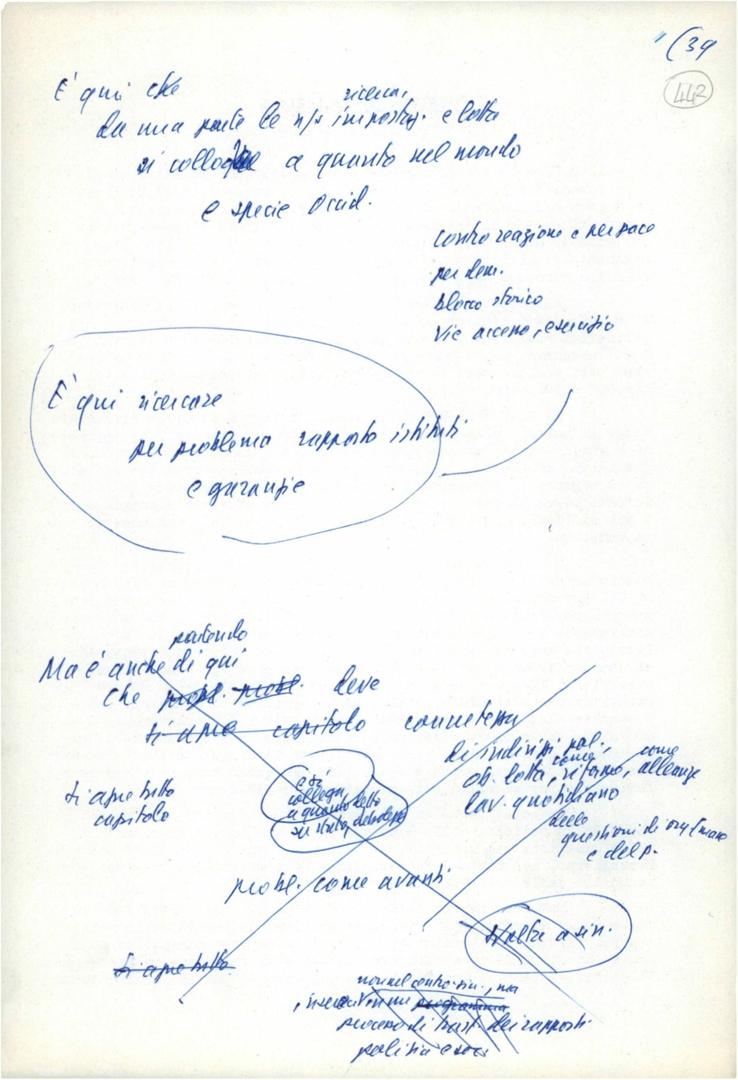 (39
442
È qui che
ricerca,
da una parte le n/s impostaz. e lotta
si collo a quanto nel mondo
e specie Occid.
contro reazione e per pace
per dem.
blocco storico
vie accesso, esercizio
È qui ricercare
per problema rapporto istituti
e garanzie
partendo
Ma è anche di qui
che probl. probl. deve
si apre capitolo connetters
di indirizzi pol.,
come come
ob. lotta, riforme, alleanze
lav. quotidiano
dello
questioni di org. mass
e del p.
si apre tutto
capitolo
e si
collega
a quanto detto
su stato,
probl. come avanti
svolta a sin.
si apre tutto
non nel centro-sin., ma
in un programma
processo di trasf. dei rapporti
politici e soc.